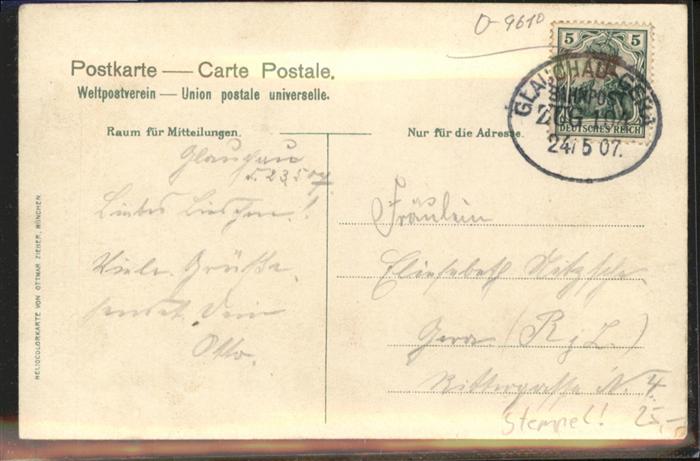 O-9610
5 5
DEUTSCHES REICH
GLAUCHAU-GERA
BAHNPOST
ZUG
24/5 07.
Postkarte — Carte Postale.
Weltpostverein — Union postale universelle.
Raum für Mitteilungen.
Nur für die Adresse.
Glauchau
23.5.07
Liebes Lieschen!
Viele Grüße
sendet Dein
Otto.
Fräulein
Elisabeth Nitzsche
Gera (R. j. L.)
Rittergasse N. 4.
Stempel! 25,-
HELIOCOLORKARTE VON OTTMAR ZIEHER, MÜNCHEN.